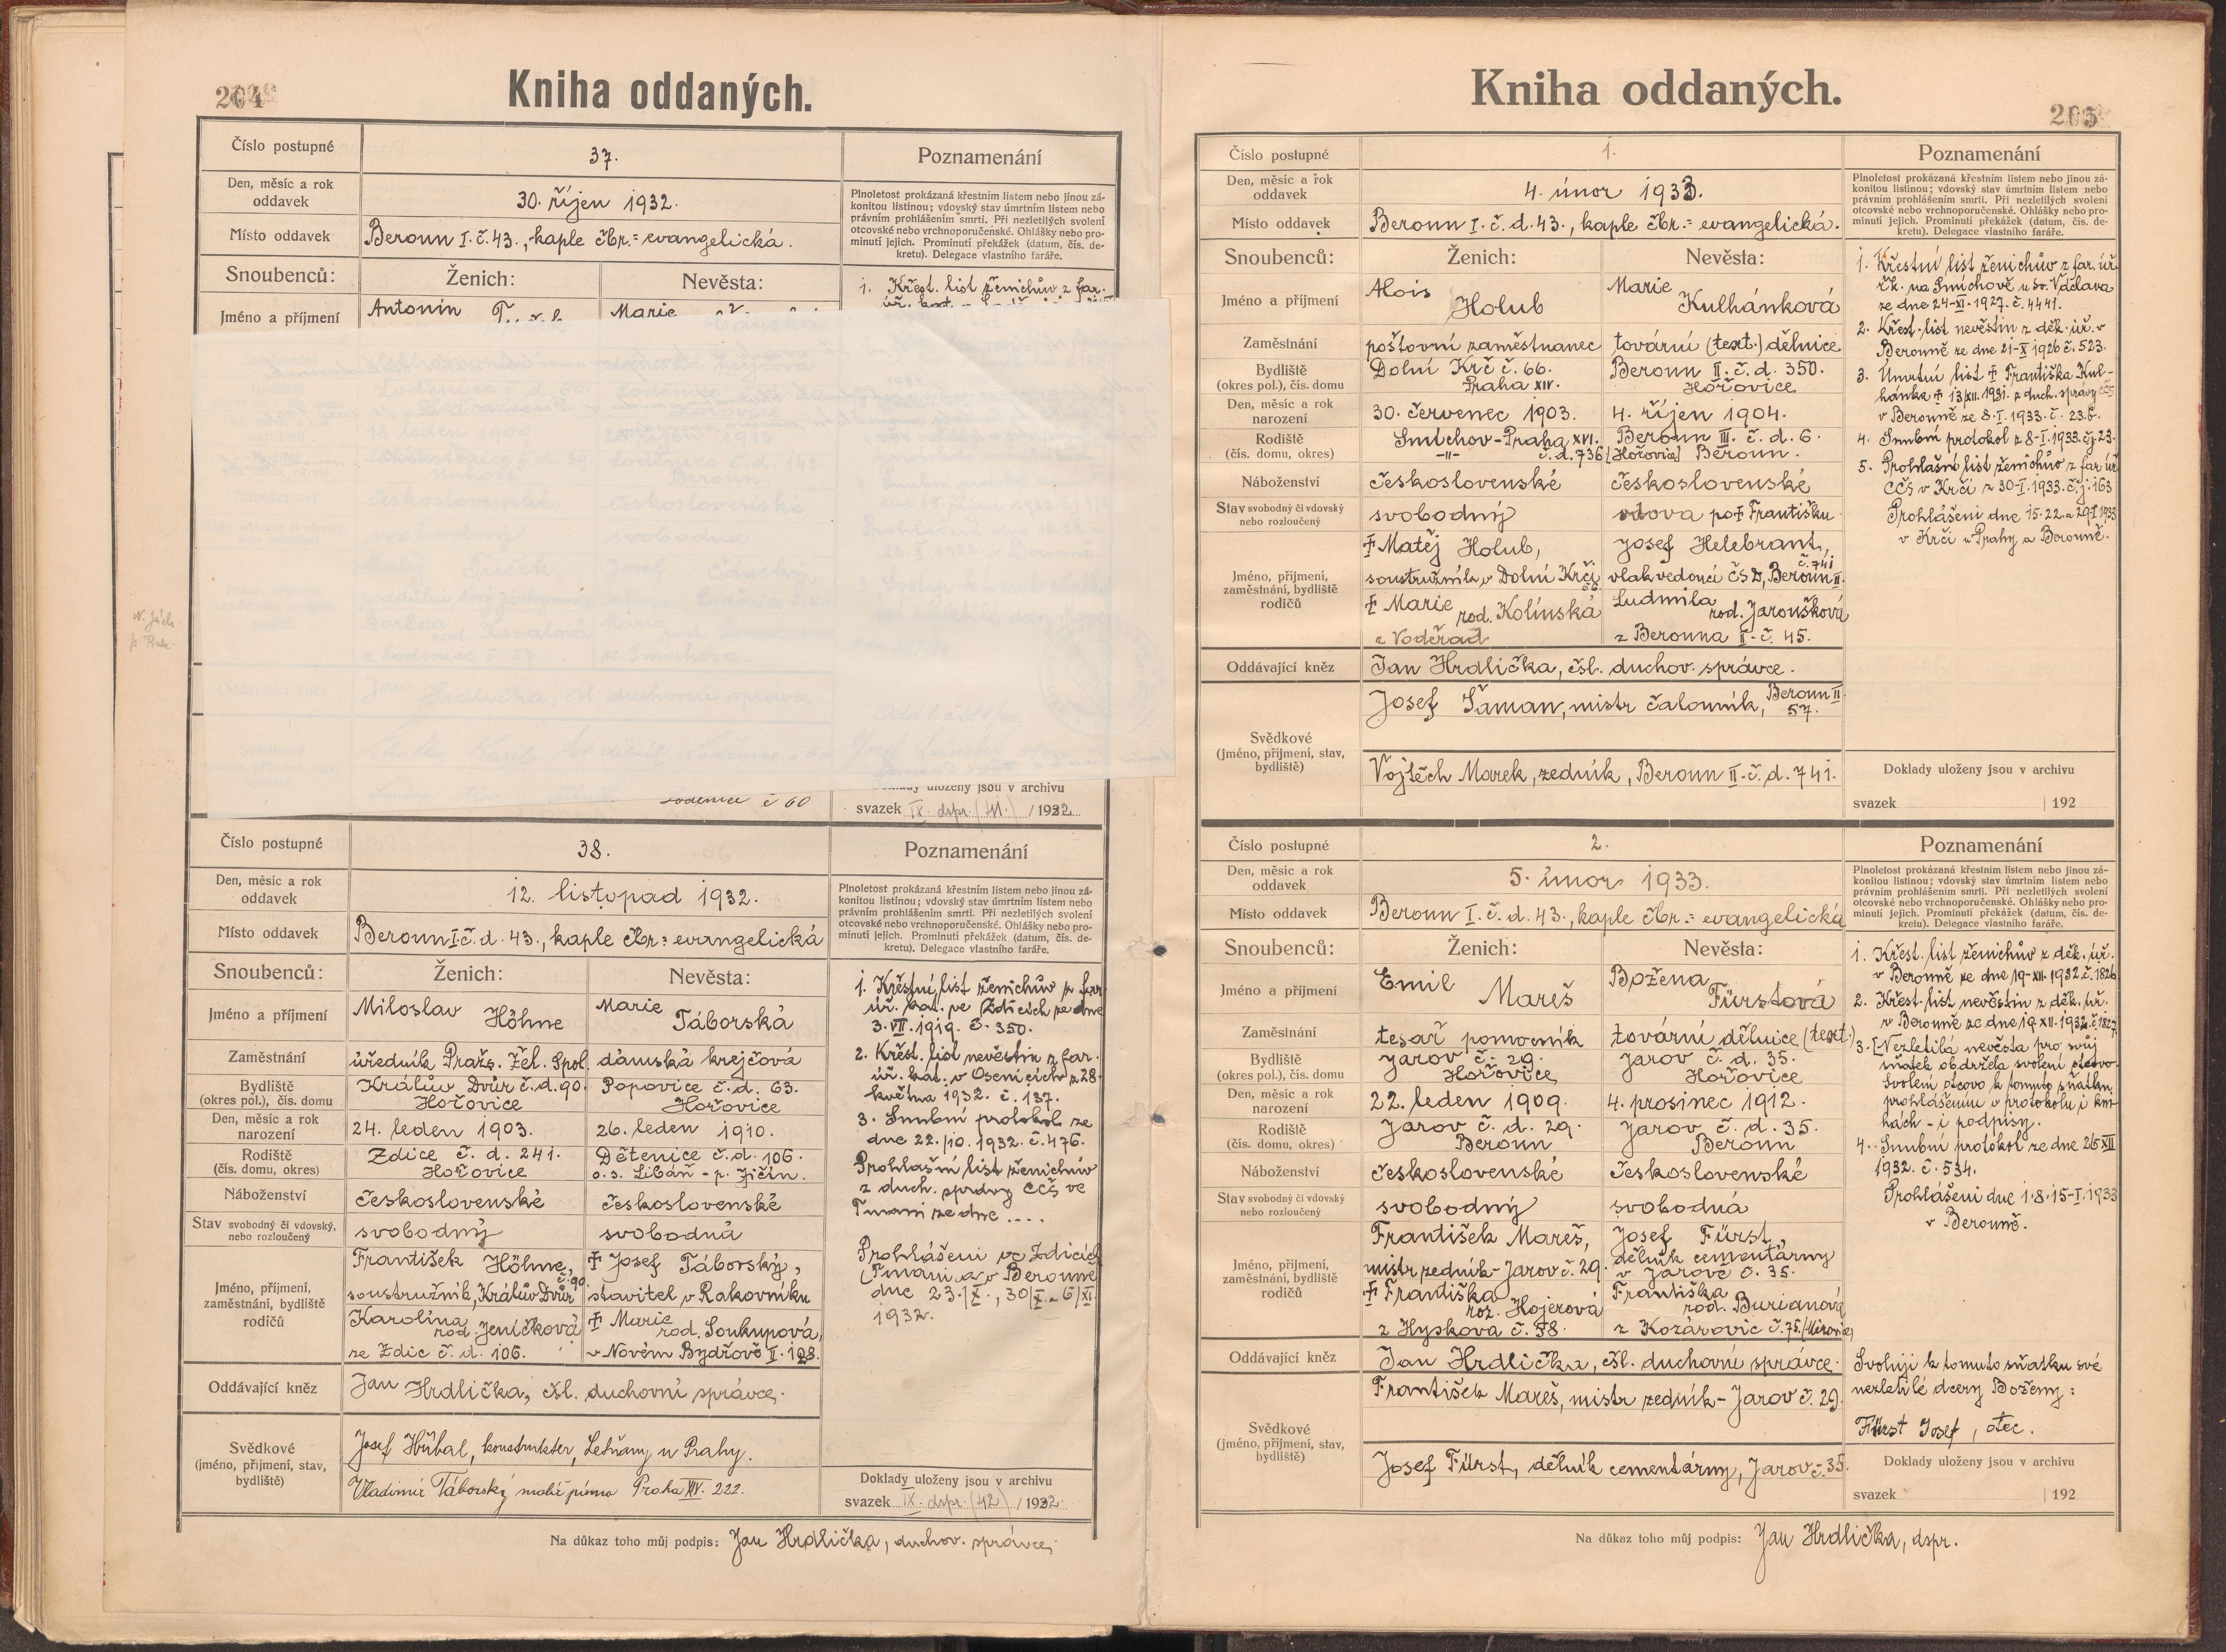 204
Kniha oddaných.
Číslo postupné
37.
Poznamenání
Den, měsíc a rok
oddavek
30. říjen 1932.
Plnoletost prokázaná křestním listem nebo jinou zá-
konitou listinou; vdovský stav úmrtním listem nebo
právním prohlášením smrti. Při nezletilých svolení
otcovské nebo vrchnoporučenské. Ohlášky nebo pro-
minutí jejich. Prominutí překážek (datum, čís. de-
kretu). Delegace vlastního faráře.
Místo oddavek
Beroun I. č. 43., kaple čbr.= evangelická.
Snoubenců:
Ženich:
Nevěsta:
1. Křest. list ženichův z far.
Jméno a příjmení
Antonín
Marie
Loděnice č 60
uloženy jsou v archivu
svazek IX. dspr. (41.) /1932
Číslo postupné
38.
Poznamenání
Den, měsíc a rok
oddavek
12. listopad 1932.
Plnoletost prokázaná křestním listem nebo jinou zá-
konitou listinou; vdovský stav úmrtním listem nebo
právním prohlášením smrti. Při nezletilých svolení
otcovské nebo vrchnoporučenské. Ohlášky nebo pro-
minutí jejich. Prominutí překážek (datum, čís. de-
kretu). Delegace vlastního faráře.
Místo oddavek
Beroun I. č. d. 43., kaple čbr.= evangelická
Snoubenců:
Ženich:
Nevěsta:
Jméno a příjmení
Miloslav Höhne
Marie Táborská
Zaměstnání
úředník Praž. Žel. Spol.
dámská krejčová
Bydliště
(okres pol.), čís. domu
Králův Dvůr č. d. 90.
Hořovice
Popovice č. d. 63.
Hořovice
Den, měsíc a rok
narození
24. leden 1903.
26. leden 1910.
Rodiště
(čís. domu, okres)
Zdice č. d. 241.
Hořovice
Dětenice č. d. 106.
o. s. Libáň - p. Jičín.
Náboženství
československé
československé
Stav svobodný či vdovský,
nebo rozloučený
svobodný
svobodná
Jméno, příjmení,
zaměstnání, bydliště
rodičů
František Höhne,
soustružník, Králův Dvůr č. 90.
Karolina
rod. Jeníčková
ze Zdic č. d. 106.
‡ Josef Táborský,
stavitel v Rakovníku
‡ Marie
rod. Soukupová,
v Novém Bydžově II. 128.
Oddávající kněz
Jan Hrdlička, čsl. duchovní správce.
Svědkové
(jméno, příjmení, stav,
bydliště)
Josef Hübal, konstruktér, Letňany u Prahy.
Vladimír Táborský malíř písma Praha XIV. 222.
1. Křestní list ženichův z far.
úř. kat. ve Zdicích ze dne
3. VII. 1919. č. 350.
2. Křest. list nevěstin z far.
úř. kat. v Osenicích z 28.
května 1932. č. 137.
3. Snubní protokol ze
dne 22./10. 1932. č. 476.
Prohlašní list ženichův
z duch. správy CČS ve
Tmani ze dne ....
Prohlášeni ve Zdicích
(Tmani a v Berouně
dne 23./X., 30/X a 6/XI
1932.
Doklady uloženy jsou v archivu
svazek IX. dspr. (42) /1932.
Na důkaz toho můj podpis: Jan Hrdlička, duchov. správce,
Kniha oddaných.
205
Číslo postupné
1.
Poznamenání
Den, měsíc a rok
oddavek
4. únor 1933.
Plnoletost prokázaná křestním listem nebo jinou zá-
konitou listinou; vdovský stav úmrtním listem nebo
právním prohlášením smrti. Při nezletilých svolení
otcovské nebo vrchnoporučenské. Ohlášky nebo pro-
minutí jejich. Prominutí překážek (datum, čís. de-
kretu). Delegace vlastního faráře.
Místo oddavek
Beroun I. č. d. 43., kaple čbr.= evangelická.
Snoubenců:
Ženich:
Nevěsta:
Jméno a příjmení
Alois Holub
Marie Kulhánková
Zaměstnání
poštovní zaměstnanec
tovární (text.) dělnice
Bydliště
(okres pol.), čís. domu
Dolní Krč č. 66.
Praha XIV.
Beroun II. č. d. 350.
Hořovice
Den, měsíc a rok
narození
30. červenec 1903.
4. říjen 1904.
Rodiště
(čís. domu, okres)
Smíchov-Praha XVI.
-"- č. d. 736
Beroun III. č. d. 6.
[Hořovice] Beroun.
Náboženství
československé
československé
Stav svobodný či vdovský
nebo rozloučený
svobodný
vdova po ‡ Františku
Jméno, příjmení,
zaměstnání, bydliště
rodičů
‡ Matěj Holub,
soustružník v Dolní Krči 66.
‡ Marie
rod. Kolínská
z Voděrad
Josef Helebrant,
vlakvedoucí ČSD, Beroun II. č. 741
Ludmila
rod. Jaroušková
z Berouna II. č. 45.
Oddávající kněz
Jan Hrdlička, čsl. duchov. správce.
Svědkové
(jméno, příjmení, stav,
bydliště)
Josef Šaman, mistr čalouník, Beroun II. 57.
Vojtěch Marek, zedník, Beroun II. č. d. 741.
1. Křestní list ženichův z far. úř.
řk. na Smíchově u sv. Václava
ze dne 24-XI. 1927. č. 4441.
2. Křest. list nevěstin z děk. úř. v
Berouně ze dne 21-X 1926 č. 523.
3. Úmrtní list ‡ Františka Kul-
hánka ‡ 13/XII. 1931. z duch. správy CČS
v Berouně ze 8. I. 1933. č. 23.
4. Snubní protokol z 8-I. 1933. čj. 23.
5. Prohlašní list ženichův z far. úř.
CČS v Krči z 30-I. 1933. č. j. 163
Prohlášeni dne 15. 22. a 29. I 1933
v Krči u Prahy a Berouně.
Doklady uloženy jsou v archivu
svazek | 192
Číslo postupné
2.
Poznamenání
Den, měsíc a rok
oddavek
5. únor 1933.
Plnoletost prokázaná křestním listem nebo jinou zá-
konitou listinou; vdovský stav úmrtním listem nebo
právním prohlášením smrti. Při nezletilých svolení
otcovské nebo vrchnoporučenské. Ohlášky nebo pro-
minutí jejich. Prominutí překážek (datum, čís. de-
kretu). Delegace vlastního faráře.
Místo oddavek
Beroun I. č. d. 43., kaple čbr.= evangelická
Snoubenců:
Ženich:
Nevěsta:
Jméno a příjmení
Emil Mareš
Božena Fürstová
Zaměstnání
tesař pomocník
tovární dělnice (text.)
Bydliště
(okres pol.), čís. domu
Jarov č. 29.
Hořovice
Jarov č. d. 35.
Hořovice
Den, měsíc a rok
narození
22. leden 1909.
4. prosinec 1912.
Rodiště
(čís. domu, okres)
Jarov č. d. 29.
Beroun
Jarov č. d. 35.
Beroun
Náboženství
československé
československé
Stav svobodný či vdovský
nebo rozloučený
svobodný
svobodná
Jméno, příjmení,
zaměstnání, bydliště
rodičů
František Mareš,
mistr zedník - Jarov č. 29.
‡ Františka
roz. Hojerová
z Hyskova č. 58.
Josef Fürst,
dělník cementárny
v Jarově č. 35.
Františka
rod. Burianová
z Kozárovic č. 75. (Mirovice)
Oddávající kněz
Jan Hrdlička, čsl. duchovní správce.
Svědkové
(jméno, příjmení, stav,
bydliště)
František Mareš, mistr zedník - Jarov č. 29.
Josef Fürst, dělník cementárny, Jarov č. 35.
1. Křest. list ženichův z děk. úř.
v Berouně ze dne 19-XII. 1932. č. 1826
2. Křest. list nevěstin z děk. úř.
v Berouně ze dne 19. XII. 1932. č. 1827.
3. [Nezletilá nevěsta pro svůj
sňatek obdržela svolení otcovo-
Svolení otcovo k tomuto sňatku
prohlášením v protokolu i kni-
hách - i podpisy.
4. Snubní protokol ze dne 25 XII
1932. č. 534.
Prohlášeni dne 1. 8. 15-I. 1933
v Berouně.
Svoluji k tomuto sňatku své
nezletilé dcery Boženy:
Fürst Josef, otec.
Doklady uloženy jsou v archivu
svazek | 192
Na důkaz toho můj podpis: Jan Hrdlička, dspr.